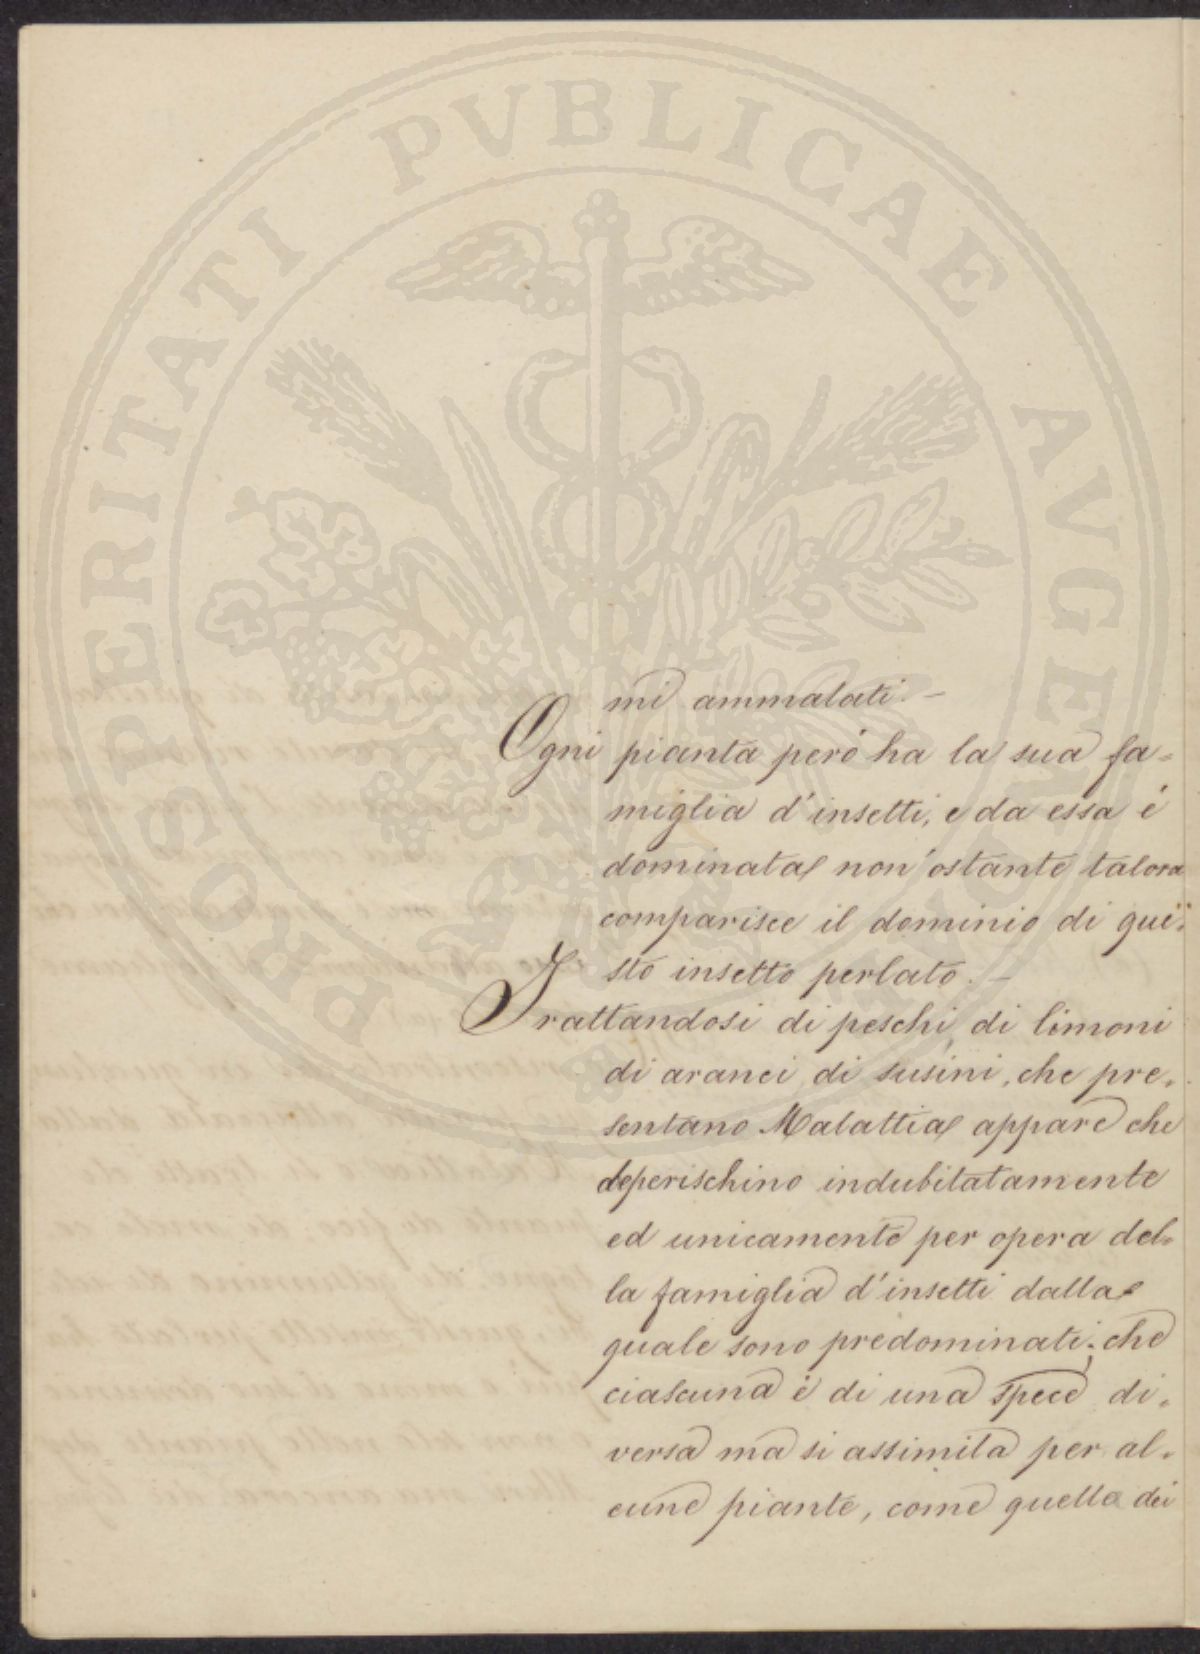 PROSPERITATI PVBLICAE AVGENDAE
mi ammalati. –
Ogni pianta però ha la sua fa=
miglia d'insetti, e da essa è
dominata, non'ostante talora
comparisce il dominio di que=
sto insetto perlato. –
Trattandosi di peschi, di limoni
di aranci, di susini, che pre=
sentano Malattia, appare che
deperischino indubitatamente
ed unicamente per opera del=
la famiglia d'insetti dalla
quale sono predominati; che
ciascuna è di una spece di=
versa ma si assimila per al=
cune piante, come quella dei